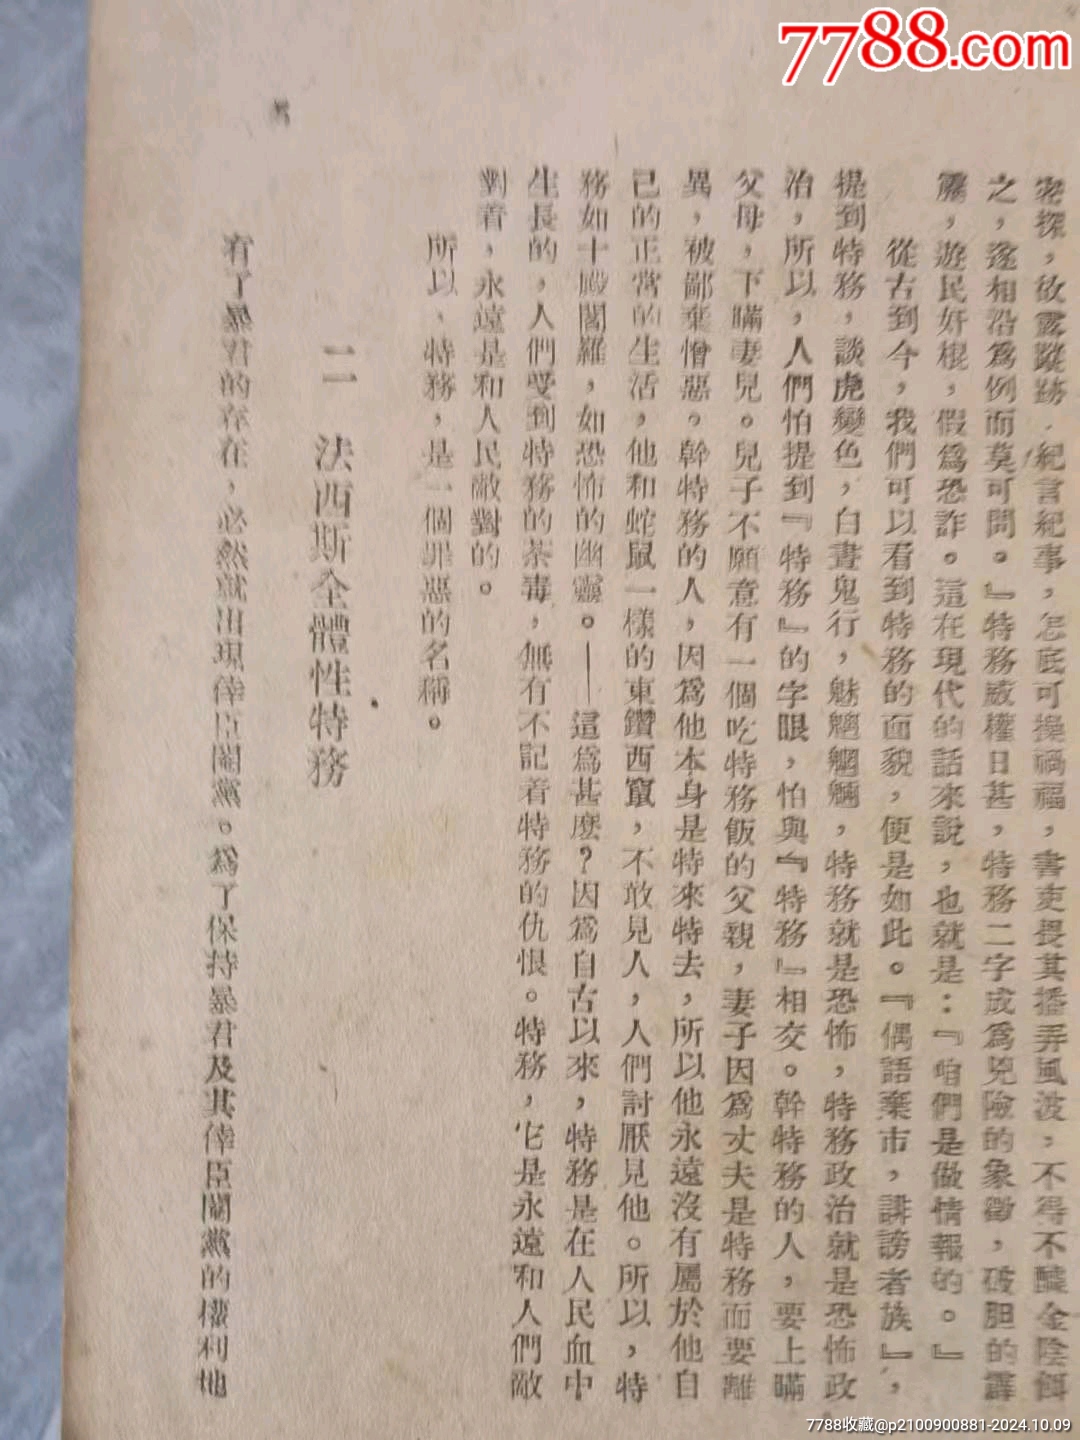 7788.com
密探，故露蹤跡．紀言紀事，怎底可操禍福，書吏畏其播弄風波，不得不醵金陰餌
之，遂相沿為例而莫可問。』特務威權日甚，特務二字成為兇險的象徵，破胆的霹
靂，遊民奸棍，假為恐詐。這在現代的話來說，也就是：『咱們是做情報的。』
從古到今，我們可以看到特務的面貌，便是如此。『偶語棄市，誹謗者族』，
提到特務，談虎變色，白晝鬼行，魅魑魍魎，特務就是恐怖，特務政治就是恐怖政
治，所以，人們怕提到『特務』的字眼，怕與『特務』相交。幹特務的人，要上瞞
父母，下瞞妻兒。兒子不願意有一個吃特務飯的父親，妻子因為丈夫是特務而要離
異，被鄙棄憎惡。幹特務的人，因為他本身是特來特去，所以他永遠沒有屬於他自
己的正常的生活，他和蛇鼠一樣的東鑽西竄，不敢見人，人們討厭見他。所以，特
務如十殿閻羅，如恐怖的幽靈。——這為甚麼？因為自古以來，特務是在人民血中
生長的，人們受到特務的荼毒，無有不記着特務的仇恨。特務，它是永遠和人們敵
對着，永遠是和人民敵對的。
所以、特務，是一個罪惡的名稱。
二 法西斯全體性特務
有了暴君的存在，必然就出現倖臣閹黨。為了保持暴君及其倖臣閹黨的權利地
7788收藏@p2100900881-2024.10.09